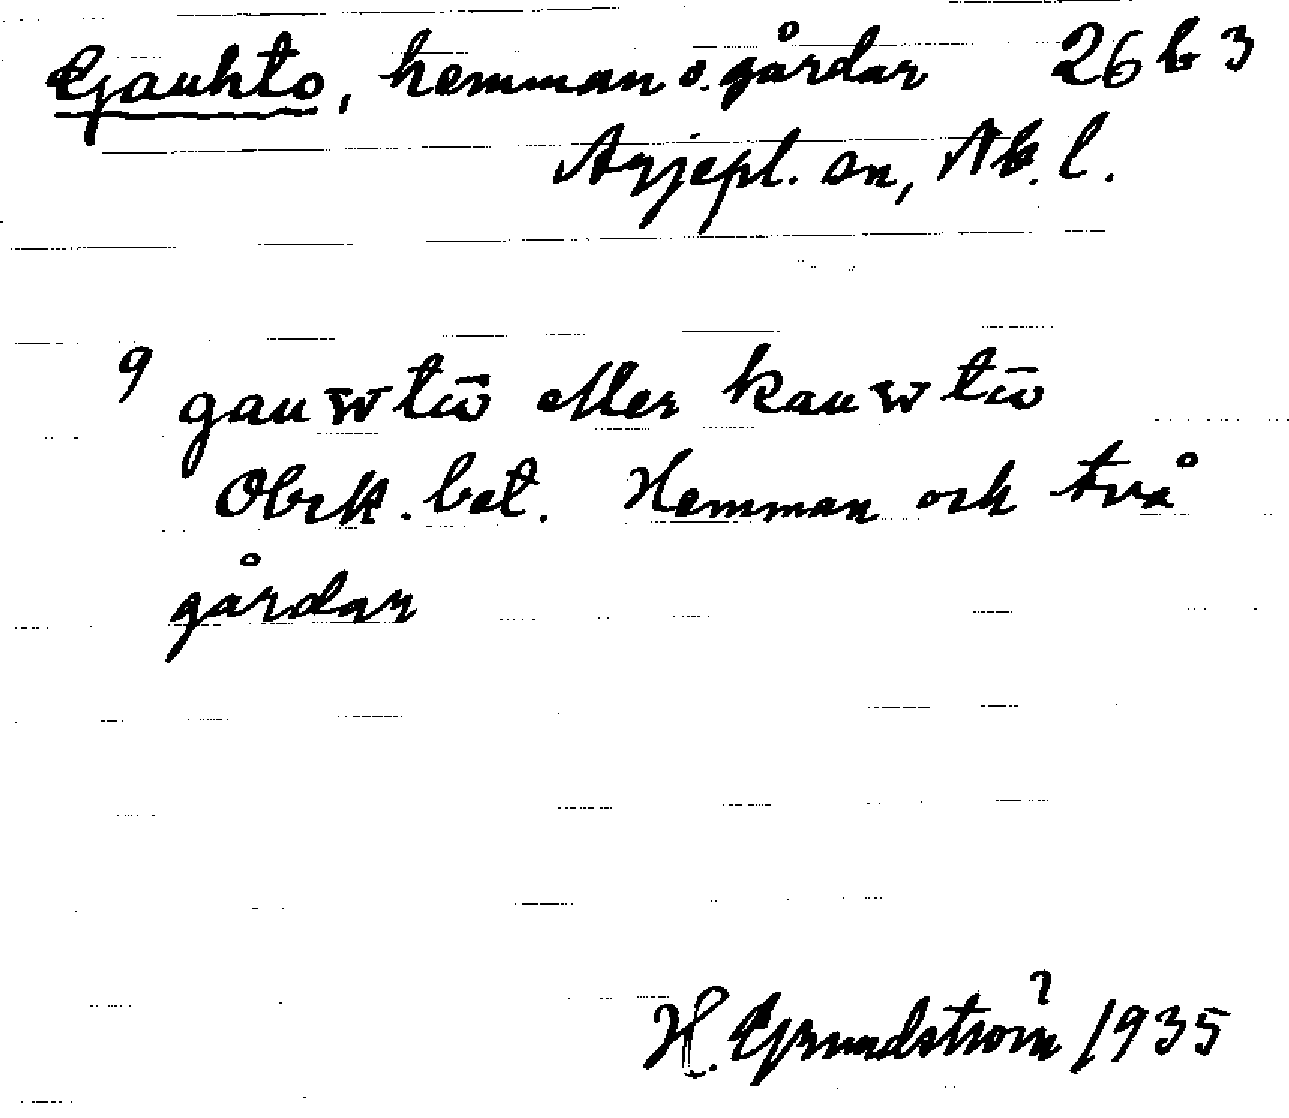 Gauhto, hemman o. gårdar 26 b 3
Arjepl. sn, Nb. l.
9 gauwtω̄ eller kauwtω̄
Obek. bet. Hemman och två
gårdar
H. Grundström 1935